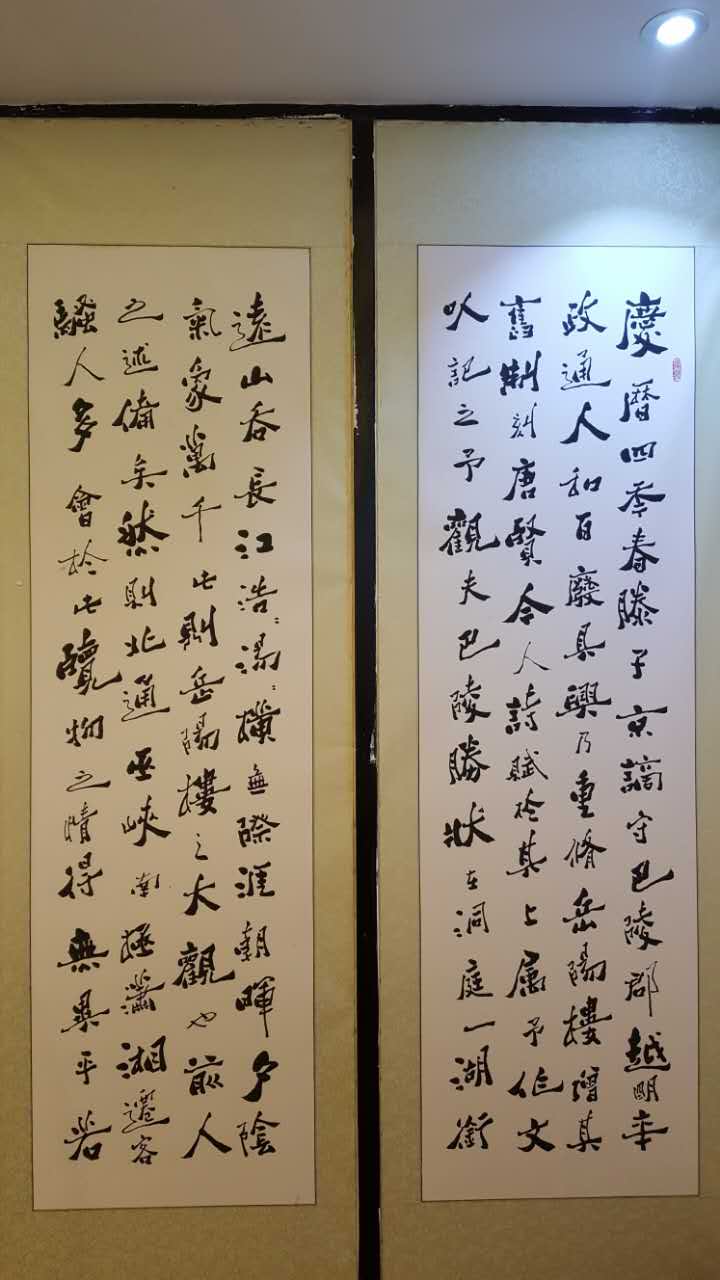 慶曆四年春滕子京謫守巴陵郡越明年
政通人和百廢具興乃重脩岳陽樓增其
舊制刻唐賢今人詩賦於其上属予作文
以記之予觀夫巴陵勝狀在洞庭一湖銜
遠山吞長江浩〻湯〻橫無際涯朝暉夕陰
氣象萬千此則岳陽樓之大觀也前人
之述備矣然則北通巫峽南極瀟湘遷客
騷人多會於此覽物之情得無異乎若